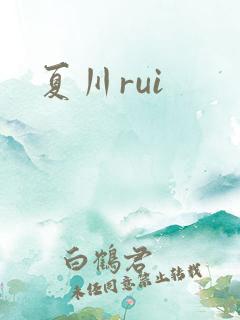 夏川rui
白鹤君
未经同意禁止转载